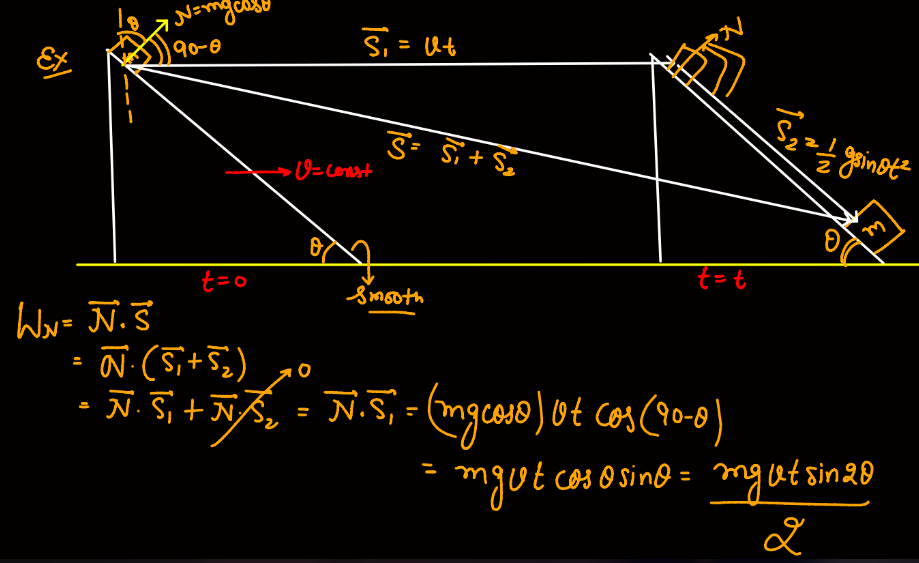 Ex
θ
N=mgcosθ
90-θ
S⃗₁ = vt
N
S⃗ = S⃗₁ + S⃗₂
S⃗₂ = 1/2 gsinθt²
v=const
θ
m
θ
t=0
Smooth
t=t
W_N = N⃗ . S⃗
= N⃗ . (S⃗₁ + S⃗₂)
= N⃗ . S⃗₁ + N⃗ . S⃗₂ 0 = N⃗ . S⃗₁ = (mgcosθ) vt cos(90-θ)
= mgvt cosθ sinθ = mgvt sin2θ / 2